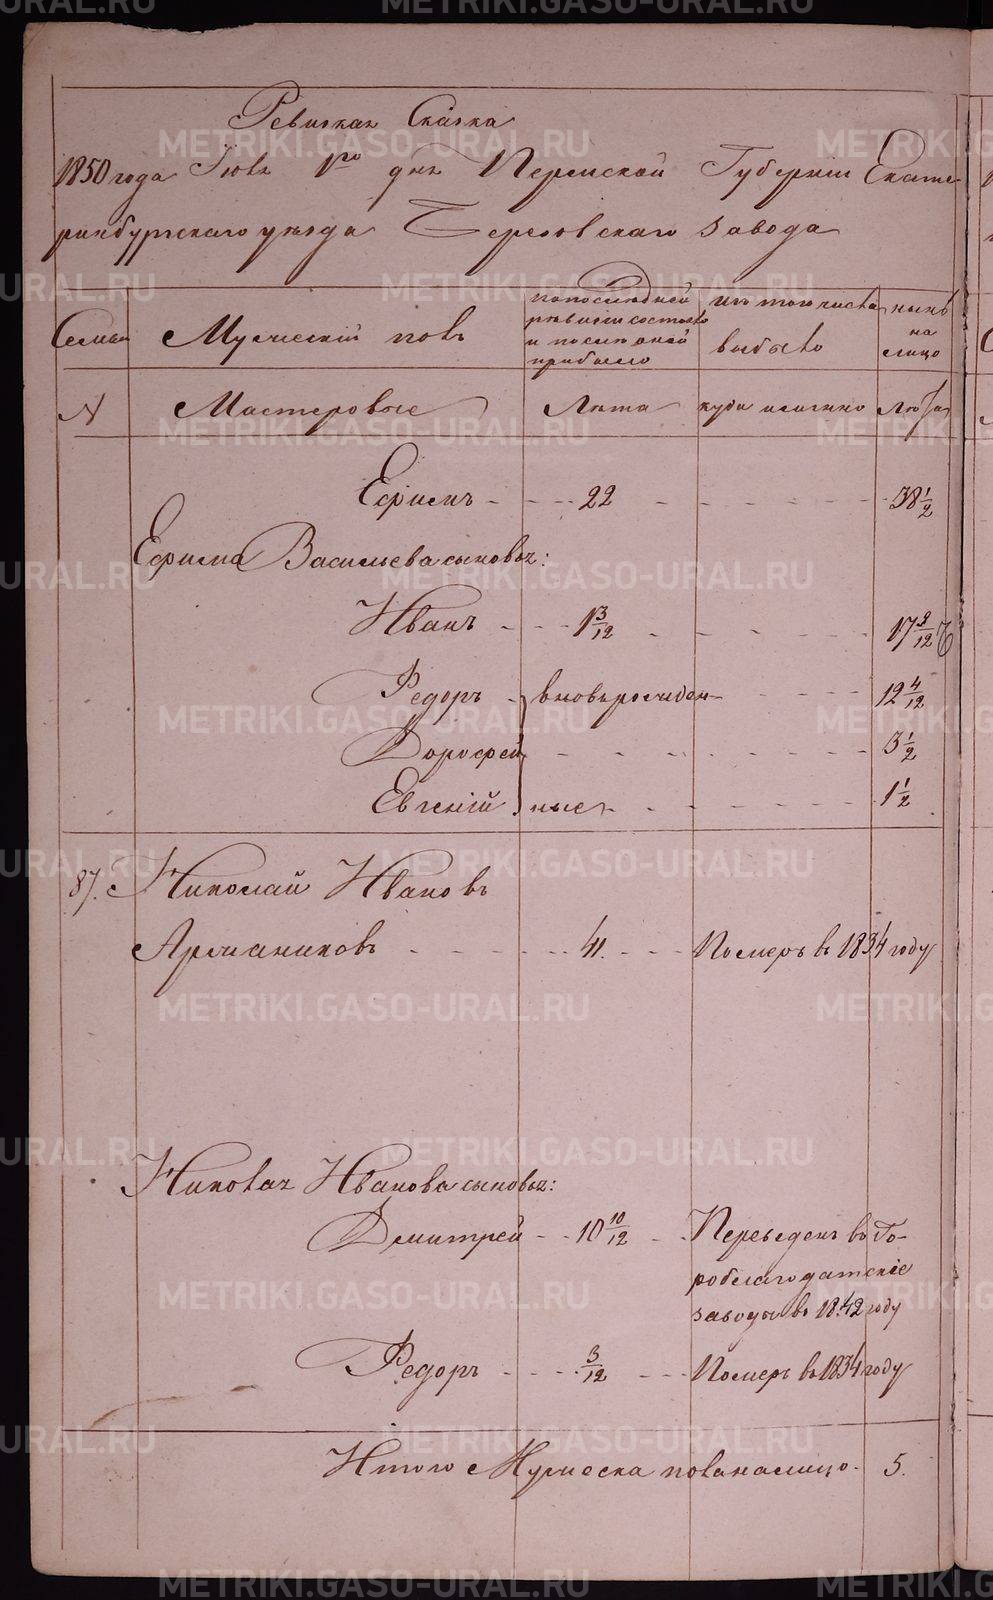 Ревизкая Сказка
1850 года Июня 1го дня Пермской Губернии Екате-
ринбургскаго уезда Березовскаго завода
Семьи
Мужеский полъ
по последней ревизии состояло и после оной прибыло
изъ того числа выбыло
ныне на лицо
N
Мастеровые
Лета
куда и когда
Лета
Ефимъ - - - 22 - - - - - 38 1/2
Ефима Васильева сыновья:
Иванъ - - - 1 3/12 - - - - 17 9/12
Федоръ - вновьрожден- - - - 12 4/12
Дорофей - - - - - - 3 1/2
Евгений ные - - - - - 1 1/2
87. Николай Ивановъ
- - - - - 41. - - Померъ в 1834 году
Николая Иванова сыновья:
Дмитрей - - 10 10/12 - Переведенъ в Го-
роблагодатские
заводы в 1842 году
Федоръ - - - - 3/12 - - - Померъ в 1834 году
Итого Мужеска пола на лицо - 5.
METRIKI.GASO-URAL.RU